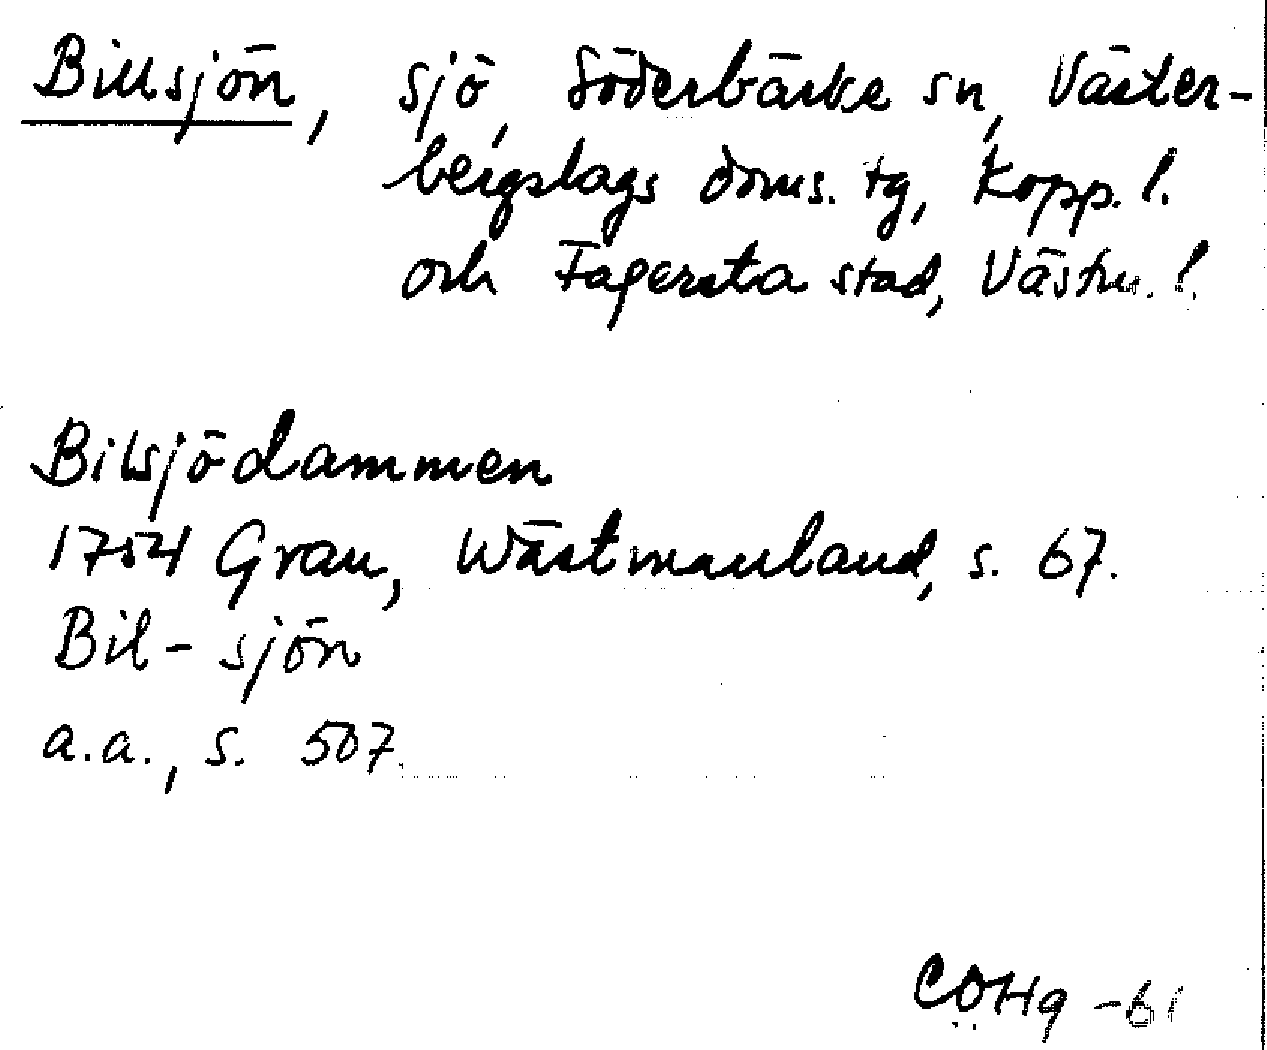 Billsjön, sjö, Söderbärke sn, Väster-
bergslags doms. tg, Kopp. l.
och Fagersta stad, Västm. l.
Bilsjödammen
1754 Grau, Wästmanland, s. 67.
Bil-sjön
a.a., s. 507.
-61